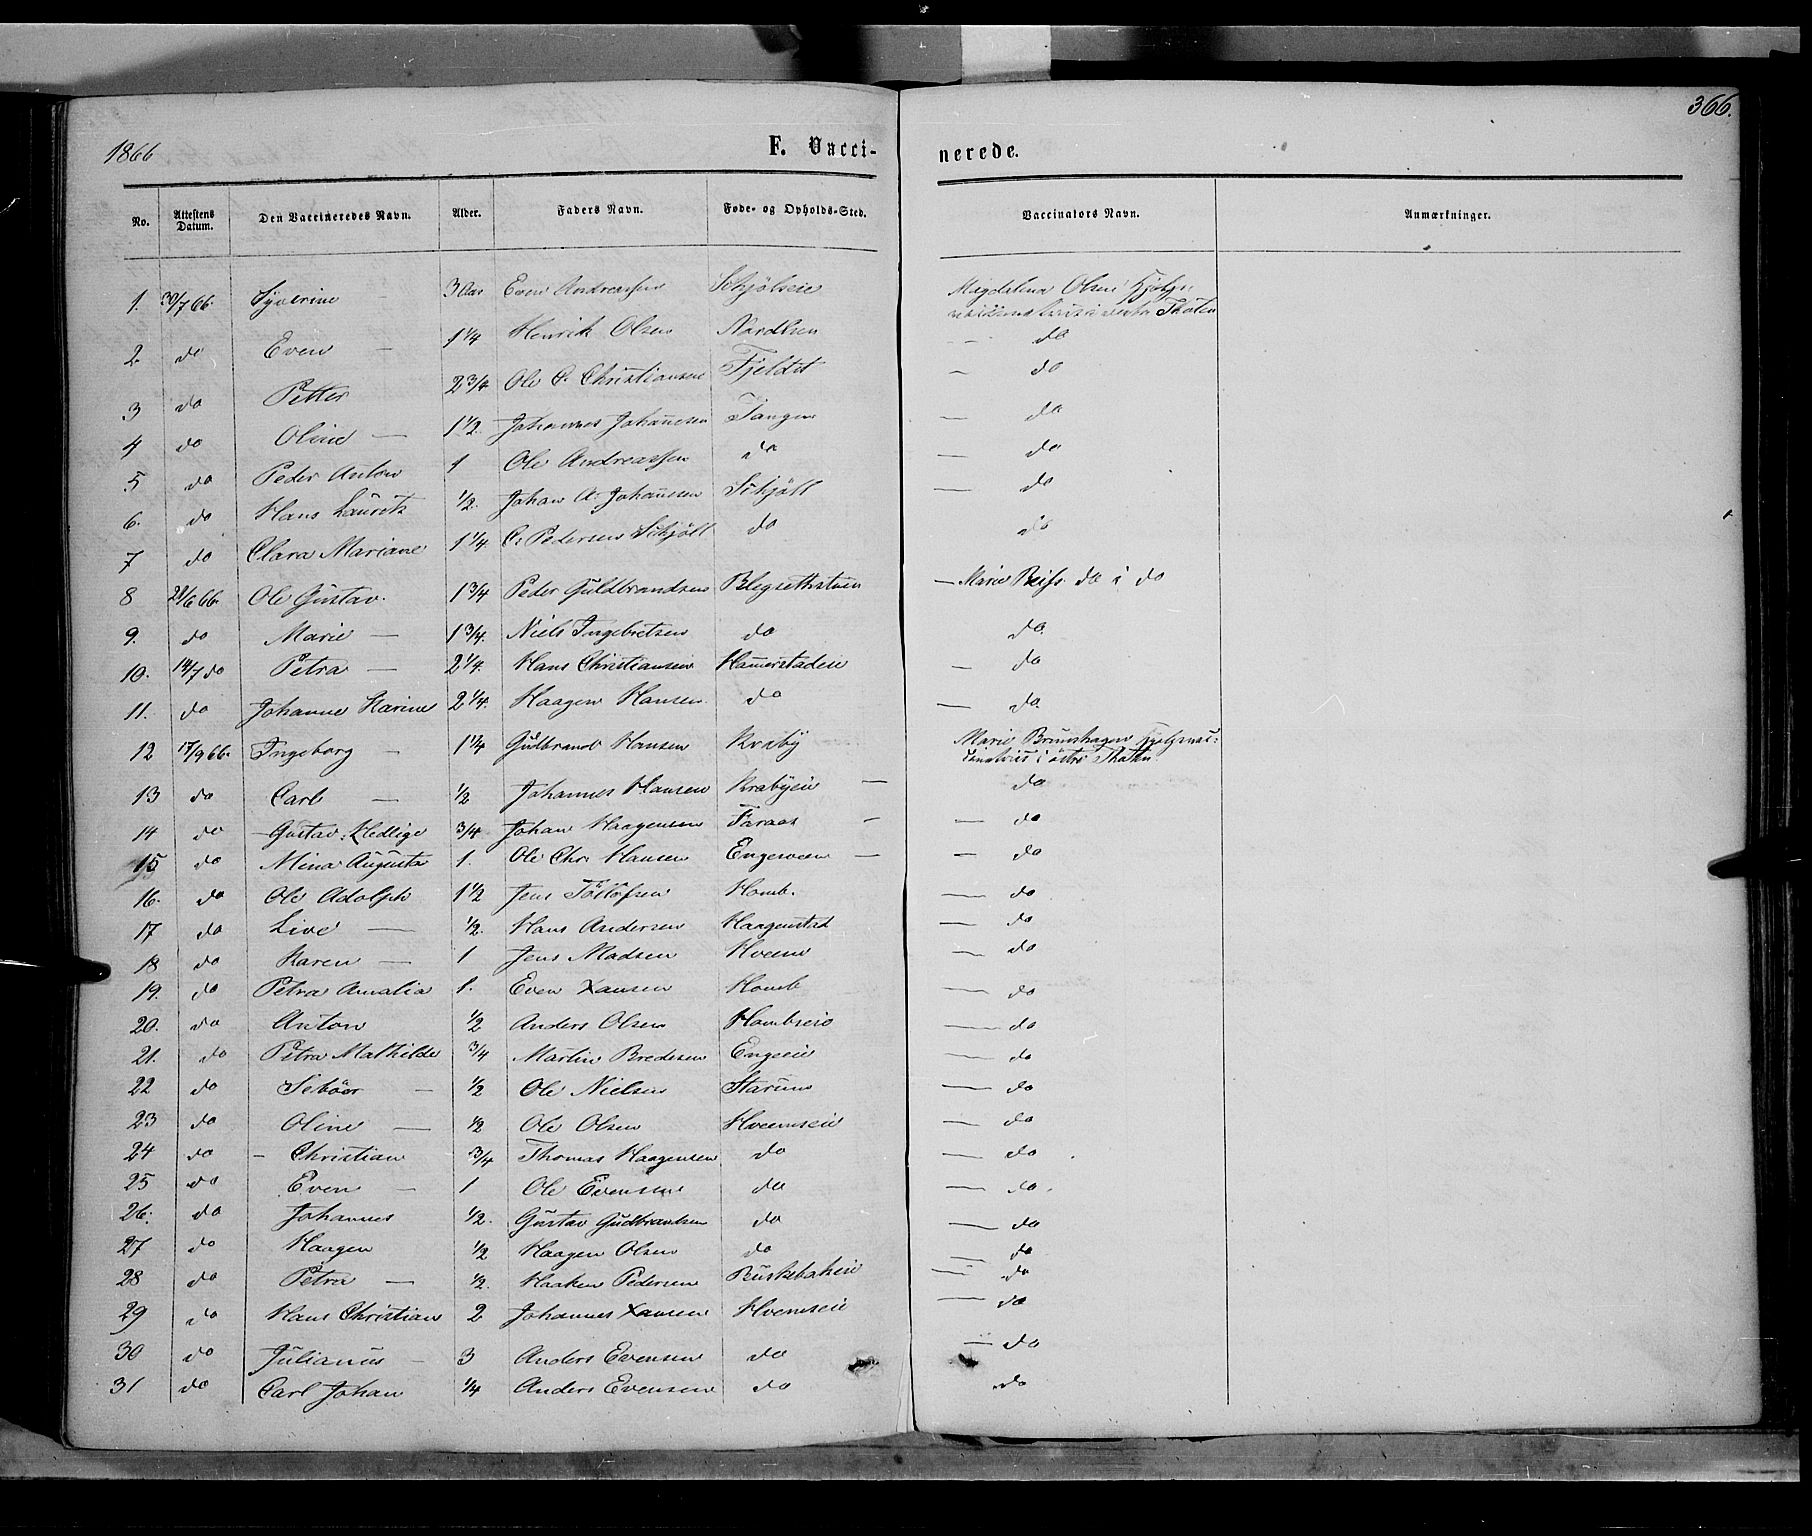 366.
1866 F. Vacci- nerede.
No. Attestens Datum. Den Vaccineredes Navn. Alder. Faders Navn. Føde- og Opholds-Sted. Vaccinators Navn. Anmærkninger.
1. 30/7 66. Syverine 3 Aar Even Andreassen Schjølseie Magdalena Olsen Hjelpe-
i vestre Thoten
2. do Even — 1 1/4 Henrik Olsen Nordlien — do
3 do Petter 2 3/4 Ole P. Christiansen Fjeldet — do
4 do Oline — 1 1/2. Johannes Johannesen Tangen — do
5 do Peder Anton 1 Ole Andreassen do — do
6. do Hans Lauritz 1/2. Johan A. Johannesen Schjöll — do
7 do Clara Mariane 1 1/4 C. Pedersen Schjöll do do
8 21/6 66. Ole Gustav. 1 3/4 Peder Guldbrandsen Blegsethstuen — Marie Reiss. do i do
9. do Marie — 1 3/4. Niels Ingebretsen do do.
10. 14/7 do Petra — 2 1/4. Hans Christiansen Hamerstadeie — do
11. do Johanne Karine 2 1/4. Haagen Hansen. do — do.
12 17/9 66. Ingeborg — 1 1/4 Gudbrand Hansen Kraby Marie Brunshagen Hjelpevac-
cinatrice i østre Thoten
13 do Carl — 1/2 Johannes Hansen Krabyeie — do
14 do — Gustav Hedlige 3/4 Johan Haagensen Faraas — — do
15 do Mina Augusta 1. Ole Chr. Hansen Engeveen — — do
16. do Ole Adolph 1 1/2 Jens Tollofsen Homb. — do
17 do Live — 1/2. Hans Andersen Haagenstad — do
18 do Karen — 1 Jens Madsen Hveem — do
19. do Petra Amalia 1. Even Hansen Homb — do
20. do Anton 1/2 Anders Olsen Hombseie — do
21. do Petra Mathilde 3/4 Martin Bredesen Engeeie — do
22 do — 1/2 Ole Nielsen Starum — do
23 do Oline — 1/2 Ole Olsen Hveemseie — do
24 do — Christian 3/4 Thomas Haagensen do — do
25 do Even — 1 Ole Evensen do — do.
26. do Johannes 1/2. Gustav Gudbrandsen do — do
27 do Haagen 1/2 Haagen Olsen do — do
28 do Petra — 1/2. Haaken Pedersen Buskebakeie — do
29 do Hans Christian 2 Johannes Hansen Hveemseie — do
30 do Julianus — 3 Anders Evensen do — do
31 do Carl Johan 1/4 Anders Evensen do do